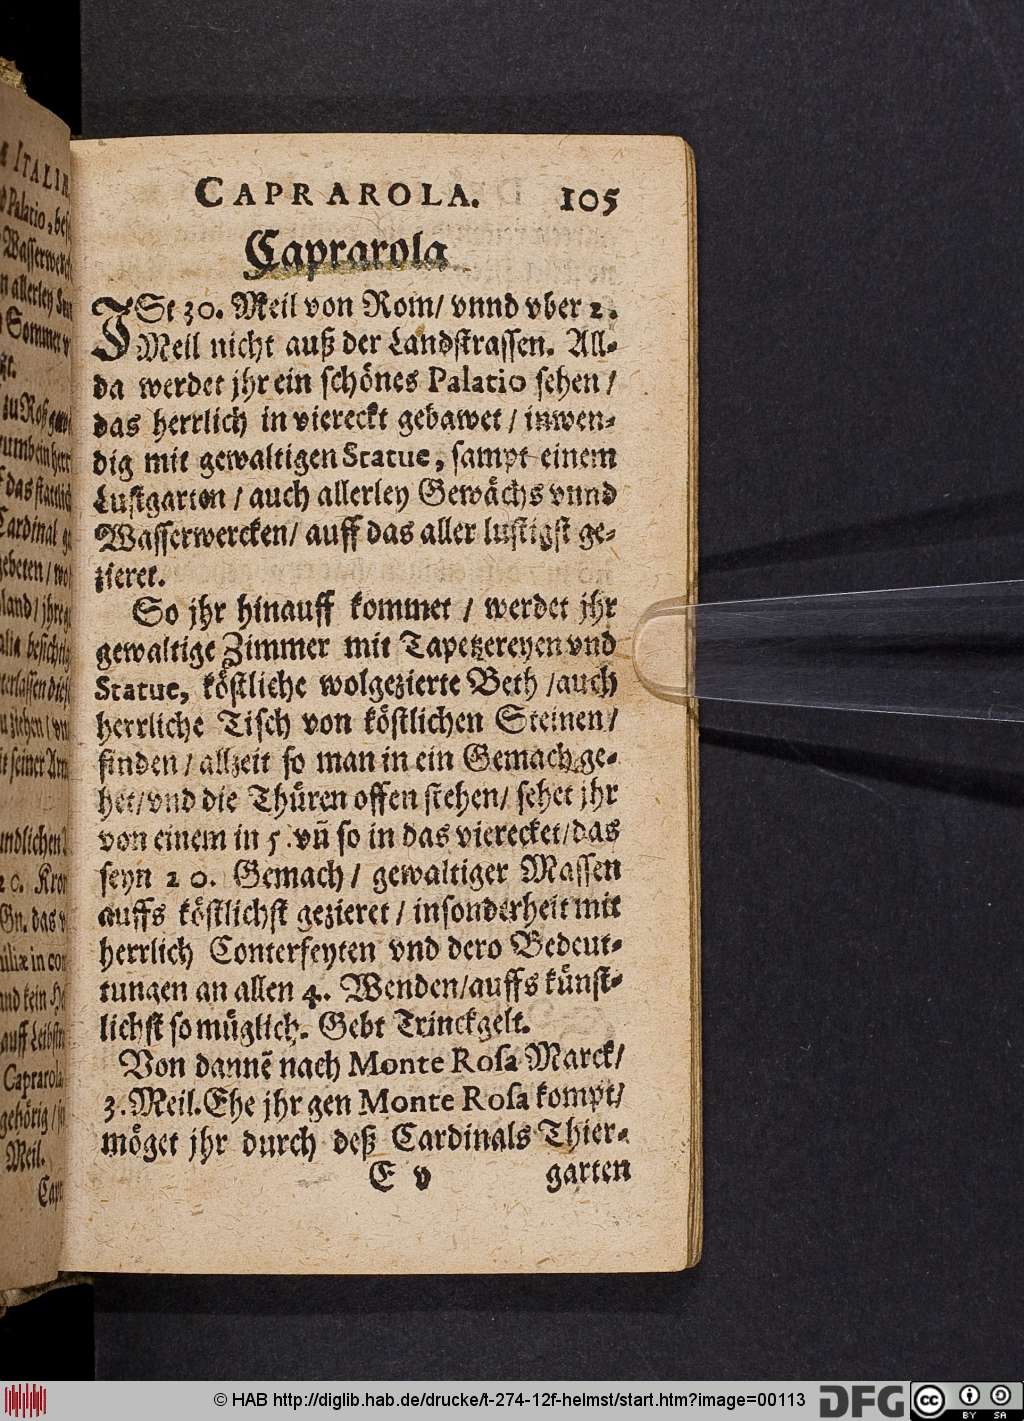 CAPRAROLA. 105
Caprarola
ISt 30. Meil von Rom/ vnnd vber 2.
Meil nicht auß der Landstrassen. All-
da werdet jhr ein schönes Palatio sehen/
das herrlich in viereckt gebawet/ inwen-
dig mit gewaltigen Statue, sampt einem
Lustgarten/ auch allerley Gewächs vnnd
Wasserwercken/ auff das aller lustigst ge-
zieret.
So jhr hinauff kommet/ werdet jhr
gewaltige Zimmer mit Tapetzereyen vnd
Statue, köstliche wolgezierte Beth/auch
herrliche Tisch von köstlichen Steinen/
finden/ allzeit so man in ein Gemach ge-
het/vnd die Thüren offen stehen/ sehet jhr
von einem in 5. vñ so in das vierecket/das
seyn 20. Gemach/ gewaltiger Massen
auffs köstlichst gezieret/ insonderheit mit
herrlich Conterfeyten vnd dero Bedeut-
tungen an allen 4. Wenden/auffs künst-
lichst so müglich. Gebt Trinckgelt.
Von dannẽ nach Monte Rosa Marck/
3. Meil. Ehe jhr gen Monte Rosa kompt/
möget jhr durch deß Cardinals Thier-
E v garten
ITALIÆ
Palatio,
Wasserwerck
allerley
Sommer
zu Roß
das stattlich
Cardinal
gebeten/
land/ jhr
besichtig
zu ziehen/
seiner
20. Kron
Gn. das
in
kein
auff
Caprarola
gehörig/
Meil.
Cap
© HAB http://diglib.hab.de/drucke/t-274-12f-helmst/start.htm?image=00113
DFG
cc
BY SA